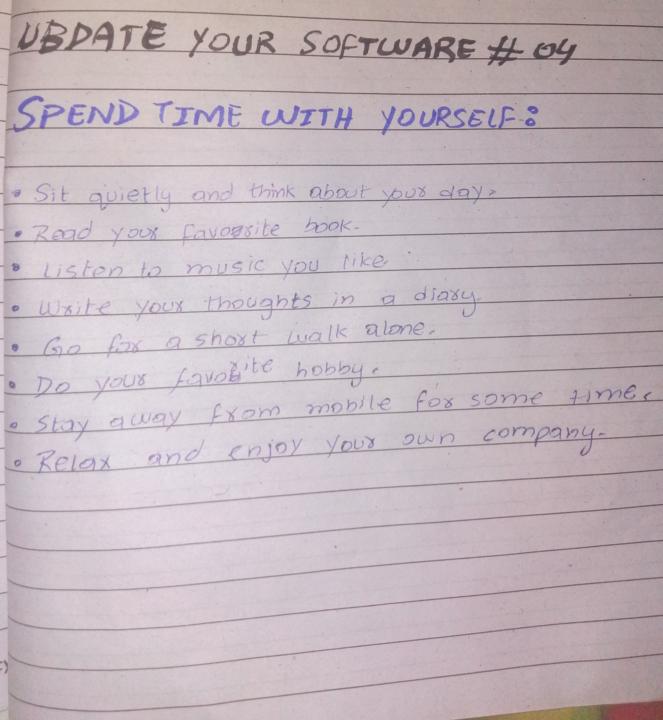 UBDATE YOUR SOFTWARE # 04
SPEND TIME WITH YOURSELF:
• Sit quietly and think about your day.
• Read your favorite book.
• Listen to music you like
• Write your thoughts in a diary
• Go for a short walk alone.
• Do your favorite hobby.
• Stay away from mobile for some time.
• Relax and enjoy your own company.